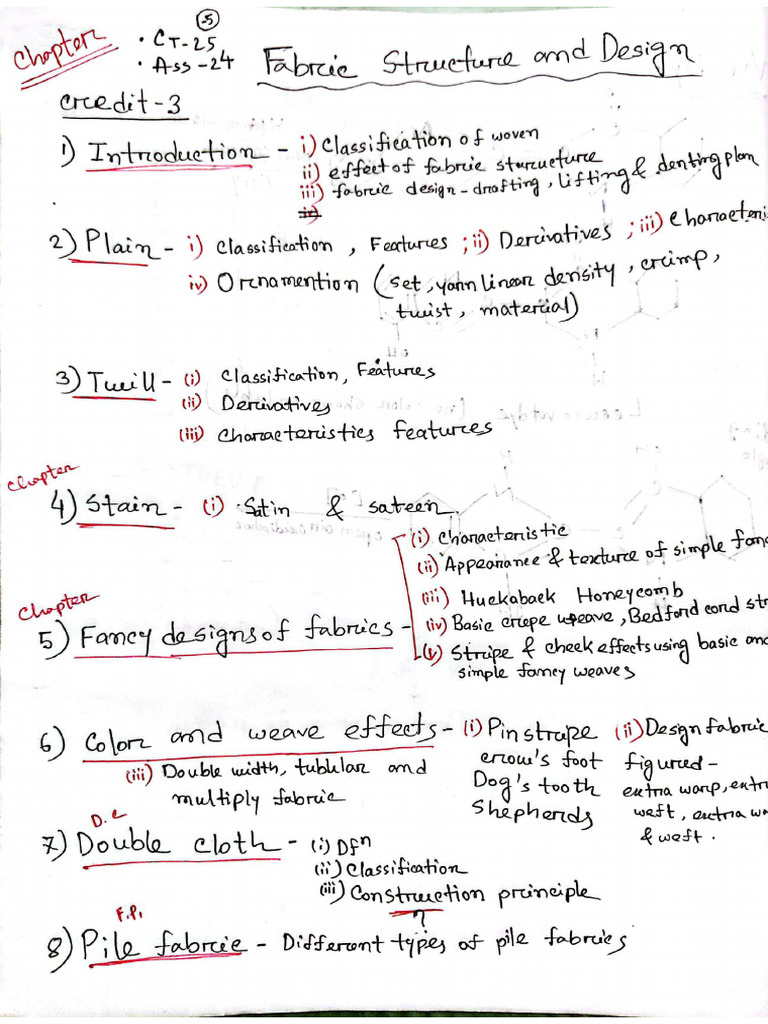 Chapter
5
• CT-25
• Ass-24
Fabric Structure and Design
credit-3
1) Introduction - i) Classification of woven
ii) effect of fabric sturucture
iii) fabric design-drafting, lifting & denting plan
iv)
2) Plain - i) classification, Features ; ii) Derivatives ; iii) Characteris
iv) Ornamention (set, yarn linear density, crimp,
twist, material)
3) Twill - (i) classification, Features
(ii) Derivatives
(iii) characteristics features
Chapter
4) Stain - (i) Satin & sateen.
Chapter
5) Fancy designs of fabrics -
(i) characteristic
(ii) Appearance & texture of simple fanc
(iii) Huckaback Honeycomb
(iv) Basic crepe weave, Bedford cord str
(v) Stripe & check effects using basic and
simple fancy weaves
6) Color and weave effects - (i) Pin stripe
crow's foot
Dog's tooth
Shepherds
(ii) Design fabric
figured -
extra warp, extr
weft, extra wa
& weft.
(iii) Double width, tubular and
multiply fabric
D.C
7) Double cloth - (i) Dfn
(ii) Classification
(iii) Construction principle
?
F.P.
8) Pile fabric - Different types of pile fabrics